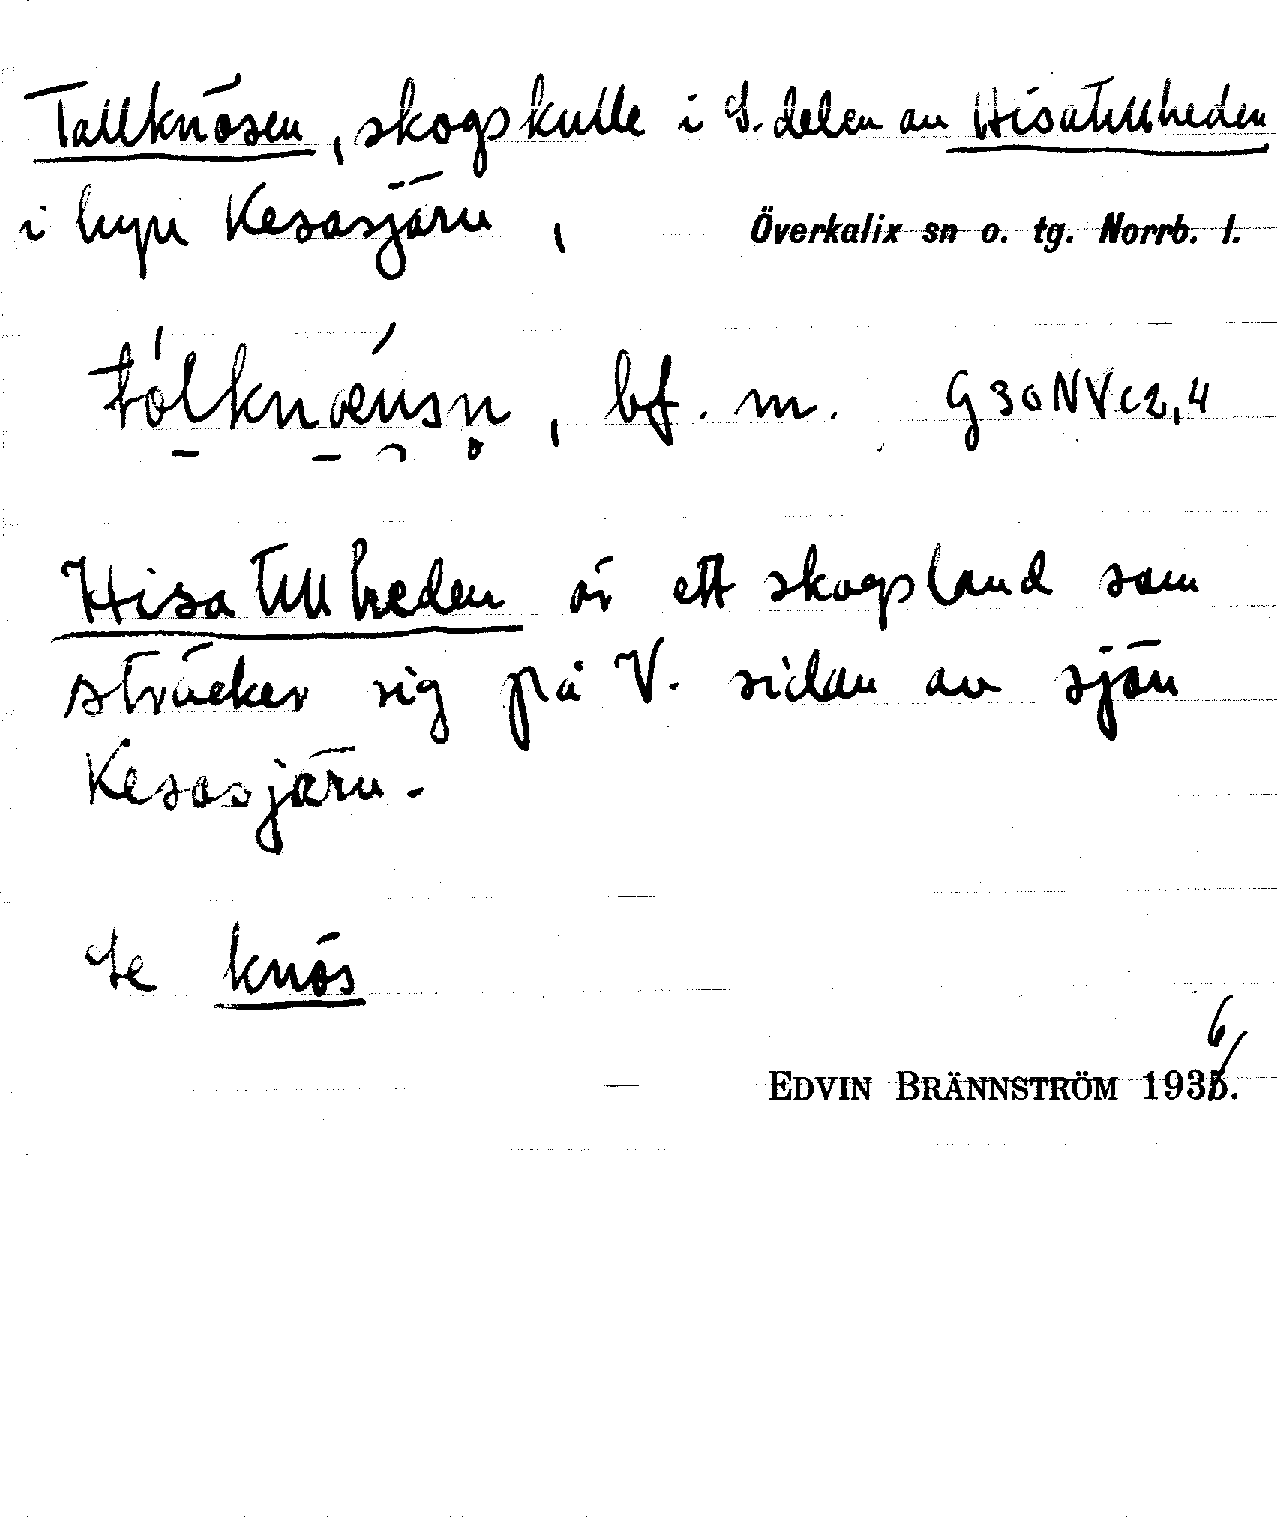 Tallknösen, skogskulle i S. delen av Hisatillheden
i byn Kesasjärv, Överkalix sn o. tg. Norrb. l.
bf. m. G30NVc2,4
Hisatillheden är ett skogsland som
sträcker sig på V. sidan av sjön
Kesasjärv.
Se knös
6
EDVIN BRÄNNSTRÖM 1935.